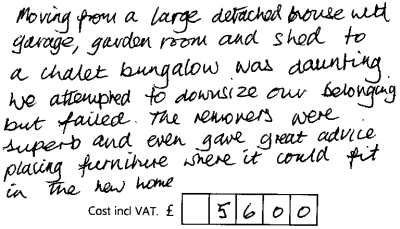 Moving from a large detached house with
garage, garden room and shed to
a chalet bungalow was daunting
we attempted to downsize our belonging
but failed. The removers were
superb and even gave great advice
placing furniture where it could fit
in the new home
Cost incl VAT. £ 5600